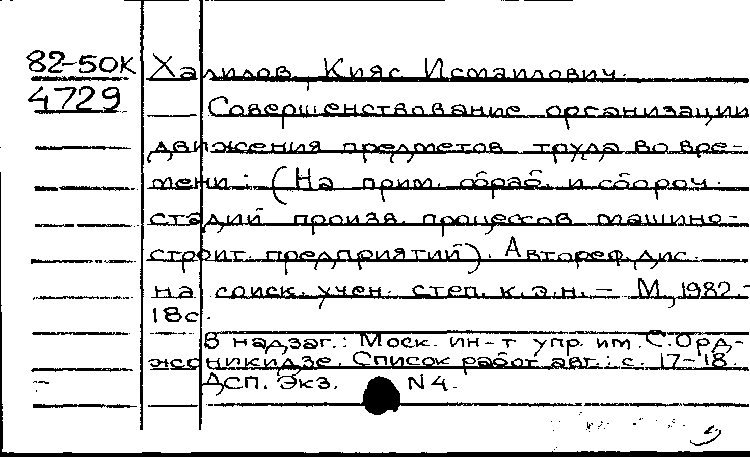 82-50К Халилов, Кияс Исмаилович.
4729 Совершенствование организации
движения предметов труда во вре-
мени: (На прим. обраб. и сбороч.
стадий произв. процессов машино-
строит. предприятий). Автореф. дис.
на соиск. учен. степ. к.э.н. – М, 1982.-
18с.
В надзаг.: Моск. ин-т упр. им. С. Орд-
жоникидзе. Список работ авт.: с. 17-18.
ДСП. Экз. N 4.